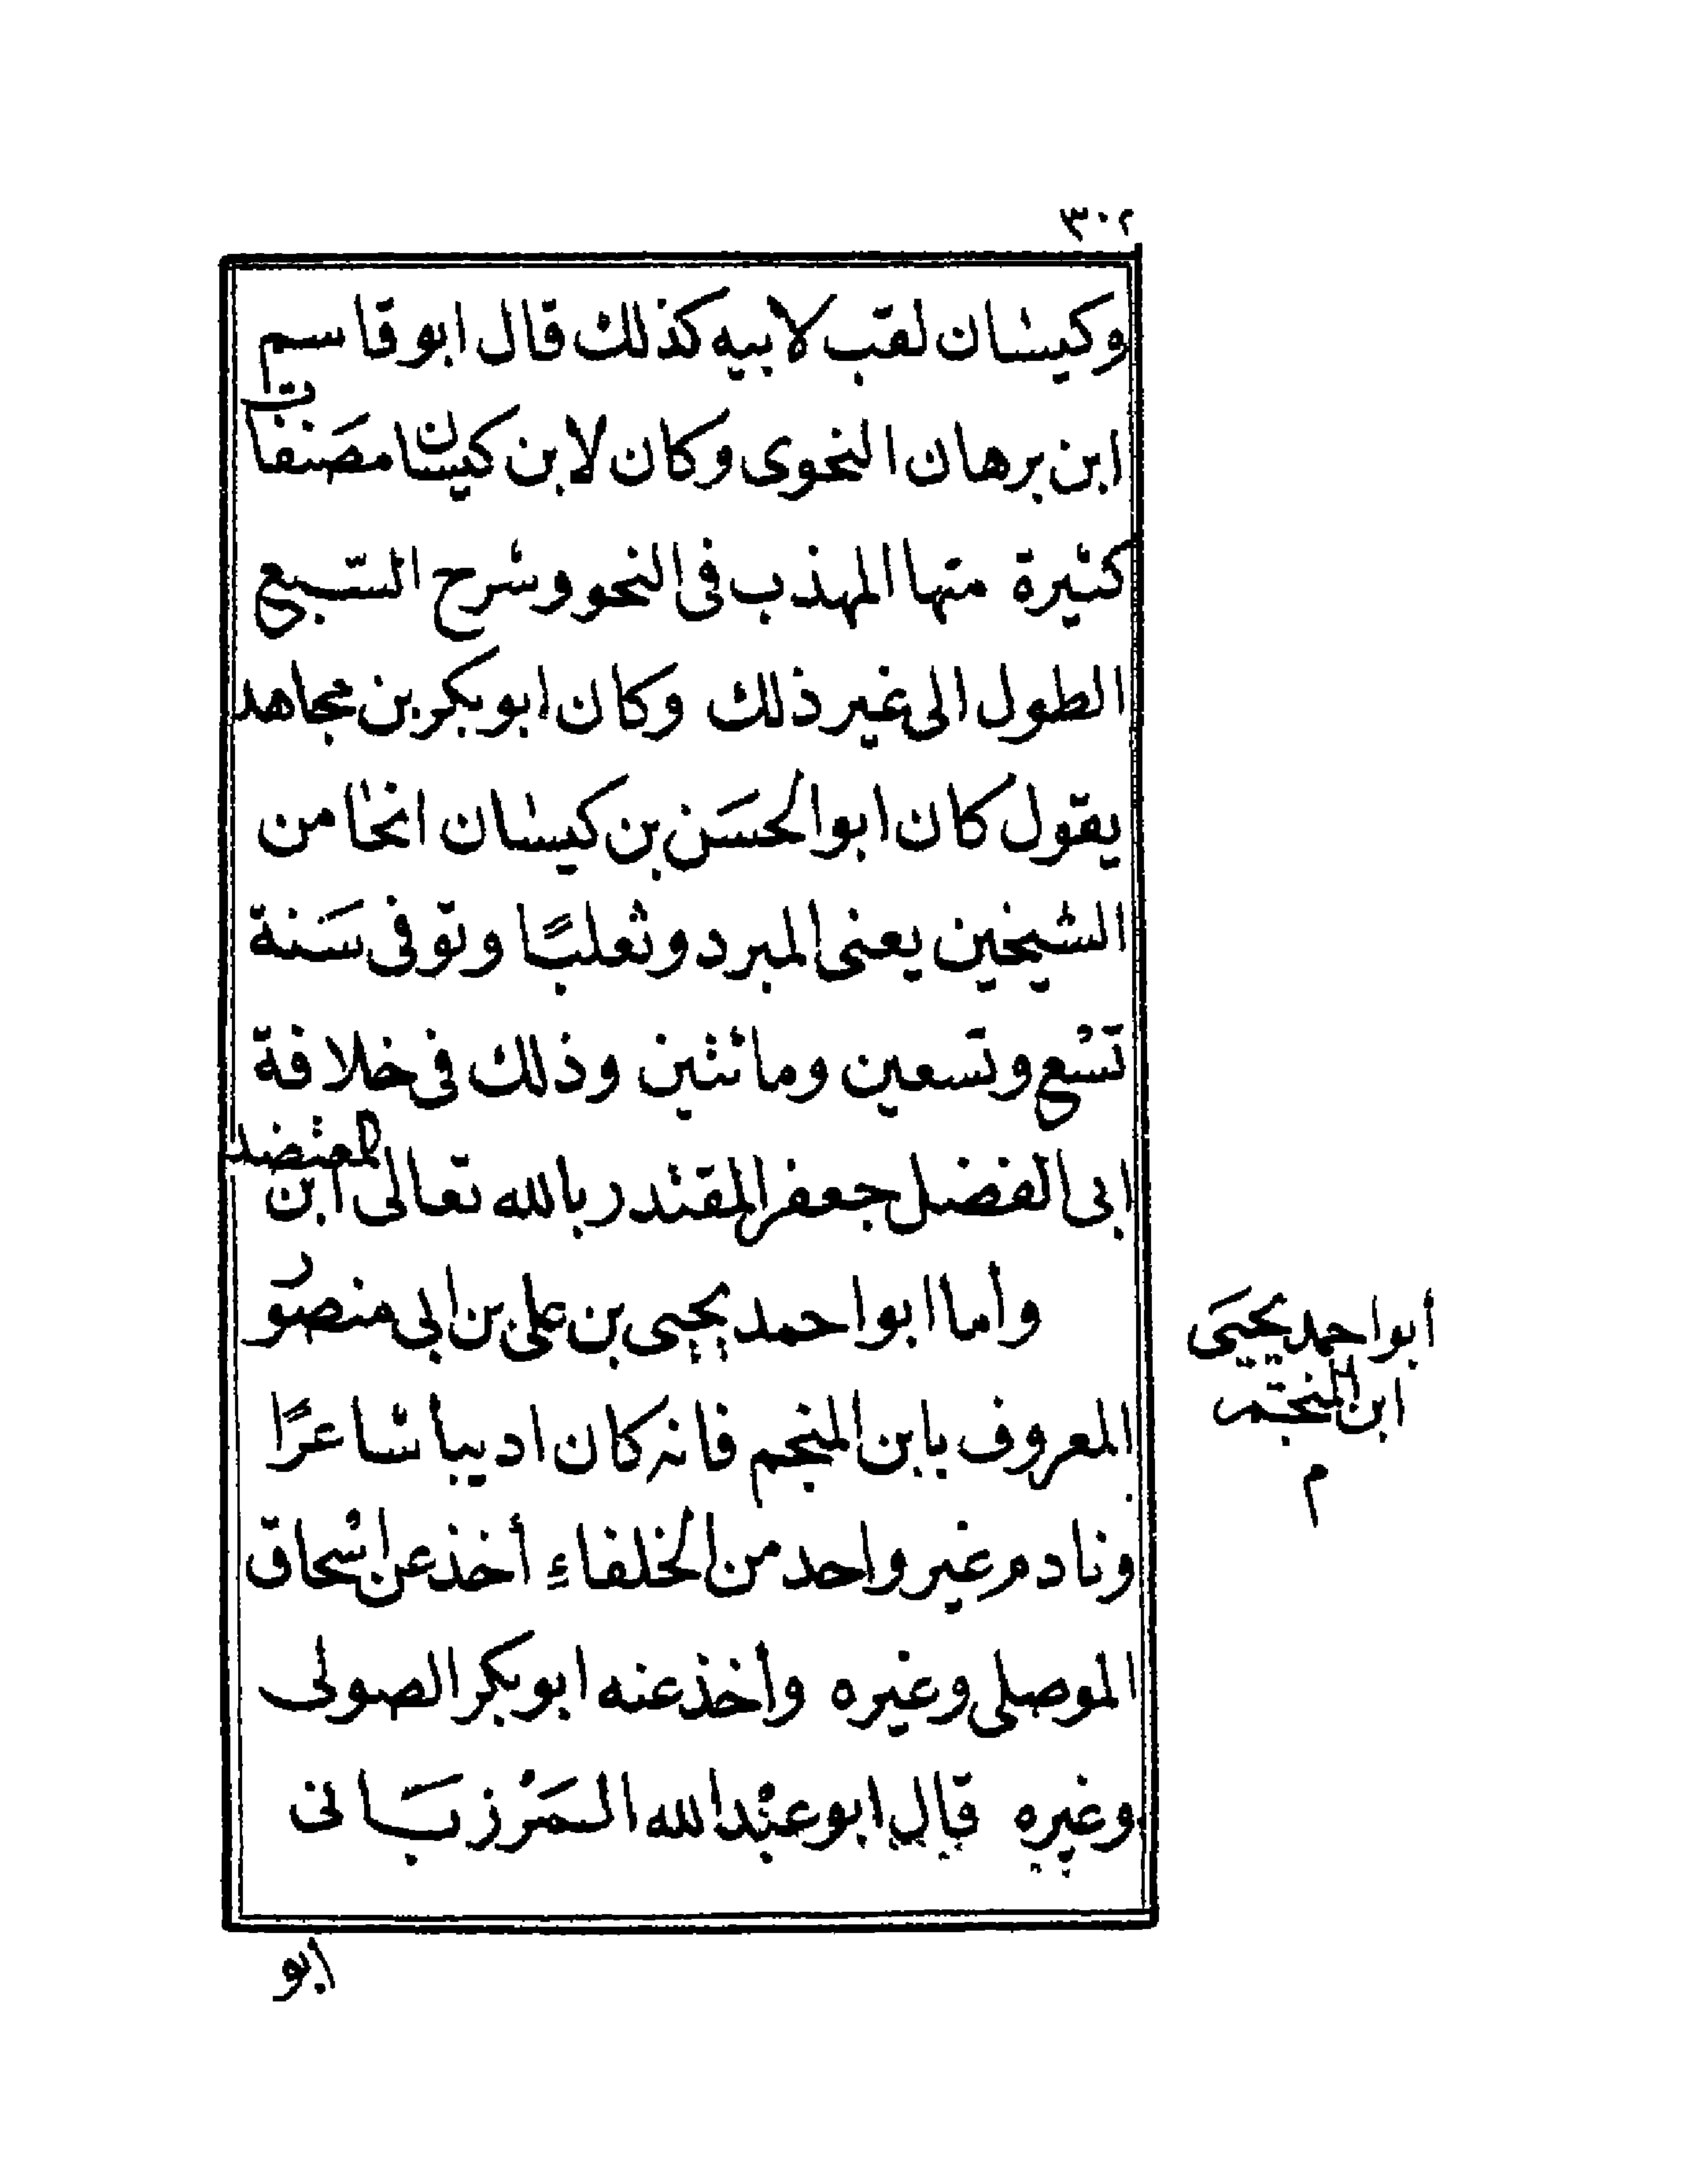 ٣٠٢
وكيسان لقب لابيه كذلك قال ابو قاسم
ابن برهان النحوى وكان لابن كيسان مصَنفات
كثيرة منها المهذب فى النحو وشرح السّبع
الطول الى غير ذلك وكان ابو بكر بن مجاهد
يقول كان ابو الحسَن بن كيسان انحا من
الشيخين يعنى المبرد وثعلبًا وتوفى سَنة
تسْع وتسعين ومائتين وذلك فى خلافة
ابى الفضل جعفر المقتدر بالله تعالى ابن المعتضد
وأما ابو احمد يحيى بن على بن ابى منصُور
أبو احمد يحيَى
ابن المنجّم
م
المعروف بابن المنجم فانه كان اديبأ شاعرًا
ونادم غير واحد من الخلفاءِ أخذ عن اسْحاق
الموصلى وغيره وأخذ عنه ابو بكر الصولى
وغيره قال ابو عبْد الله المَرْزبَانى
أبو